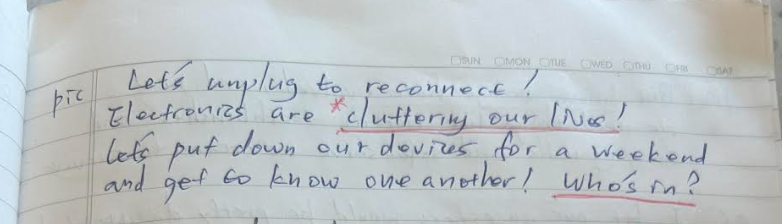 SUN MON TUE WED THU FRI SAT
pic Let's unplug to reconnect!
Electronics are *cluttering our lives!
Let's put down our devices for a weekend
and get to know one another! Who's in?